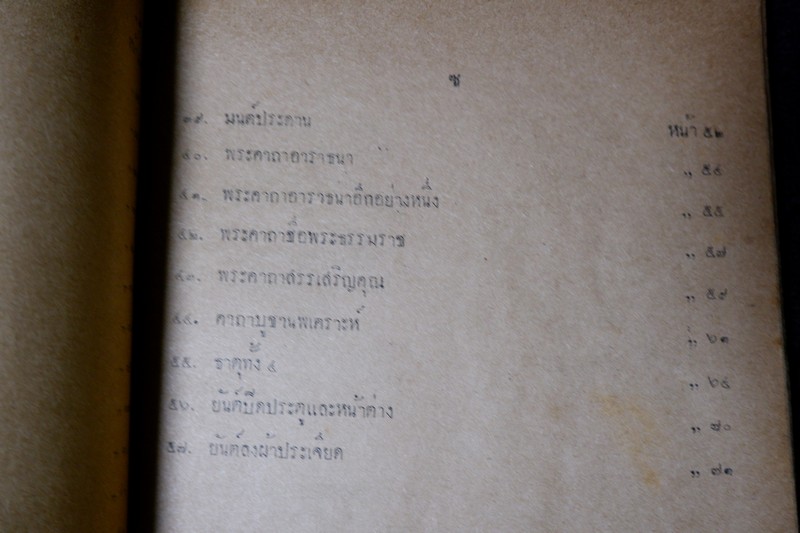 ซ
๓๙. มนต์ หน้า ๕๒
๔๐. พระคาถาอาราธนา ,, ๕๔
๔๑. พระคาถาอาราธนาอีกอย่างหนึ่ง ,, ๕๕
๔๒. พระคาถาชื่อพระธรรมราช ,, ๕๗
๔๓. พระคาถาสรรเสริญคุณ ,, ๕๙
๔๔. คาถาบูชานพเคราะห์ ,, ๖๑
๔๕. ธาตุทั้ง ๔ ,, ๖๔
๔๖. ยันต์ปิดประตูและหน้าต่าง ,, ๗๐
๔๗. ยันต์ลงผ้าประเจียด ,, ๗๑